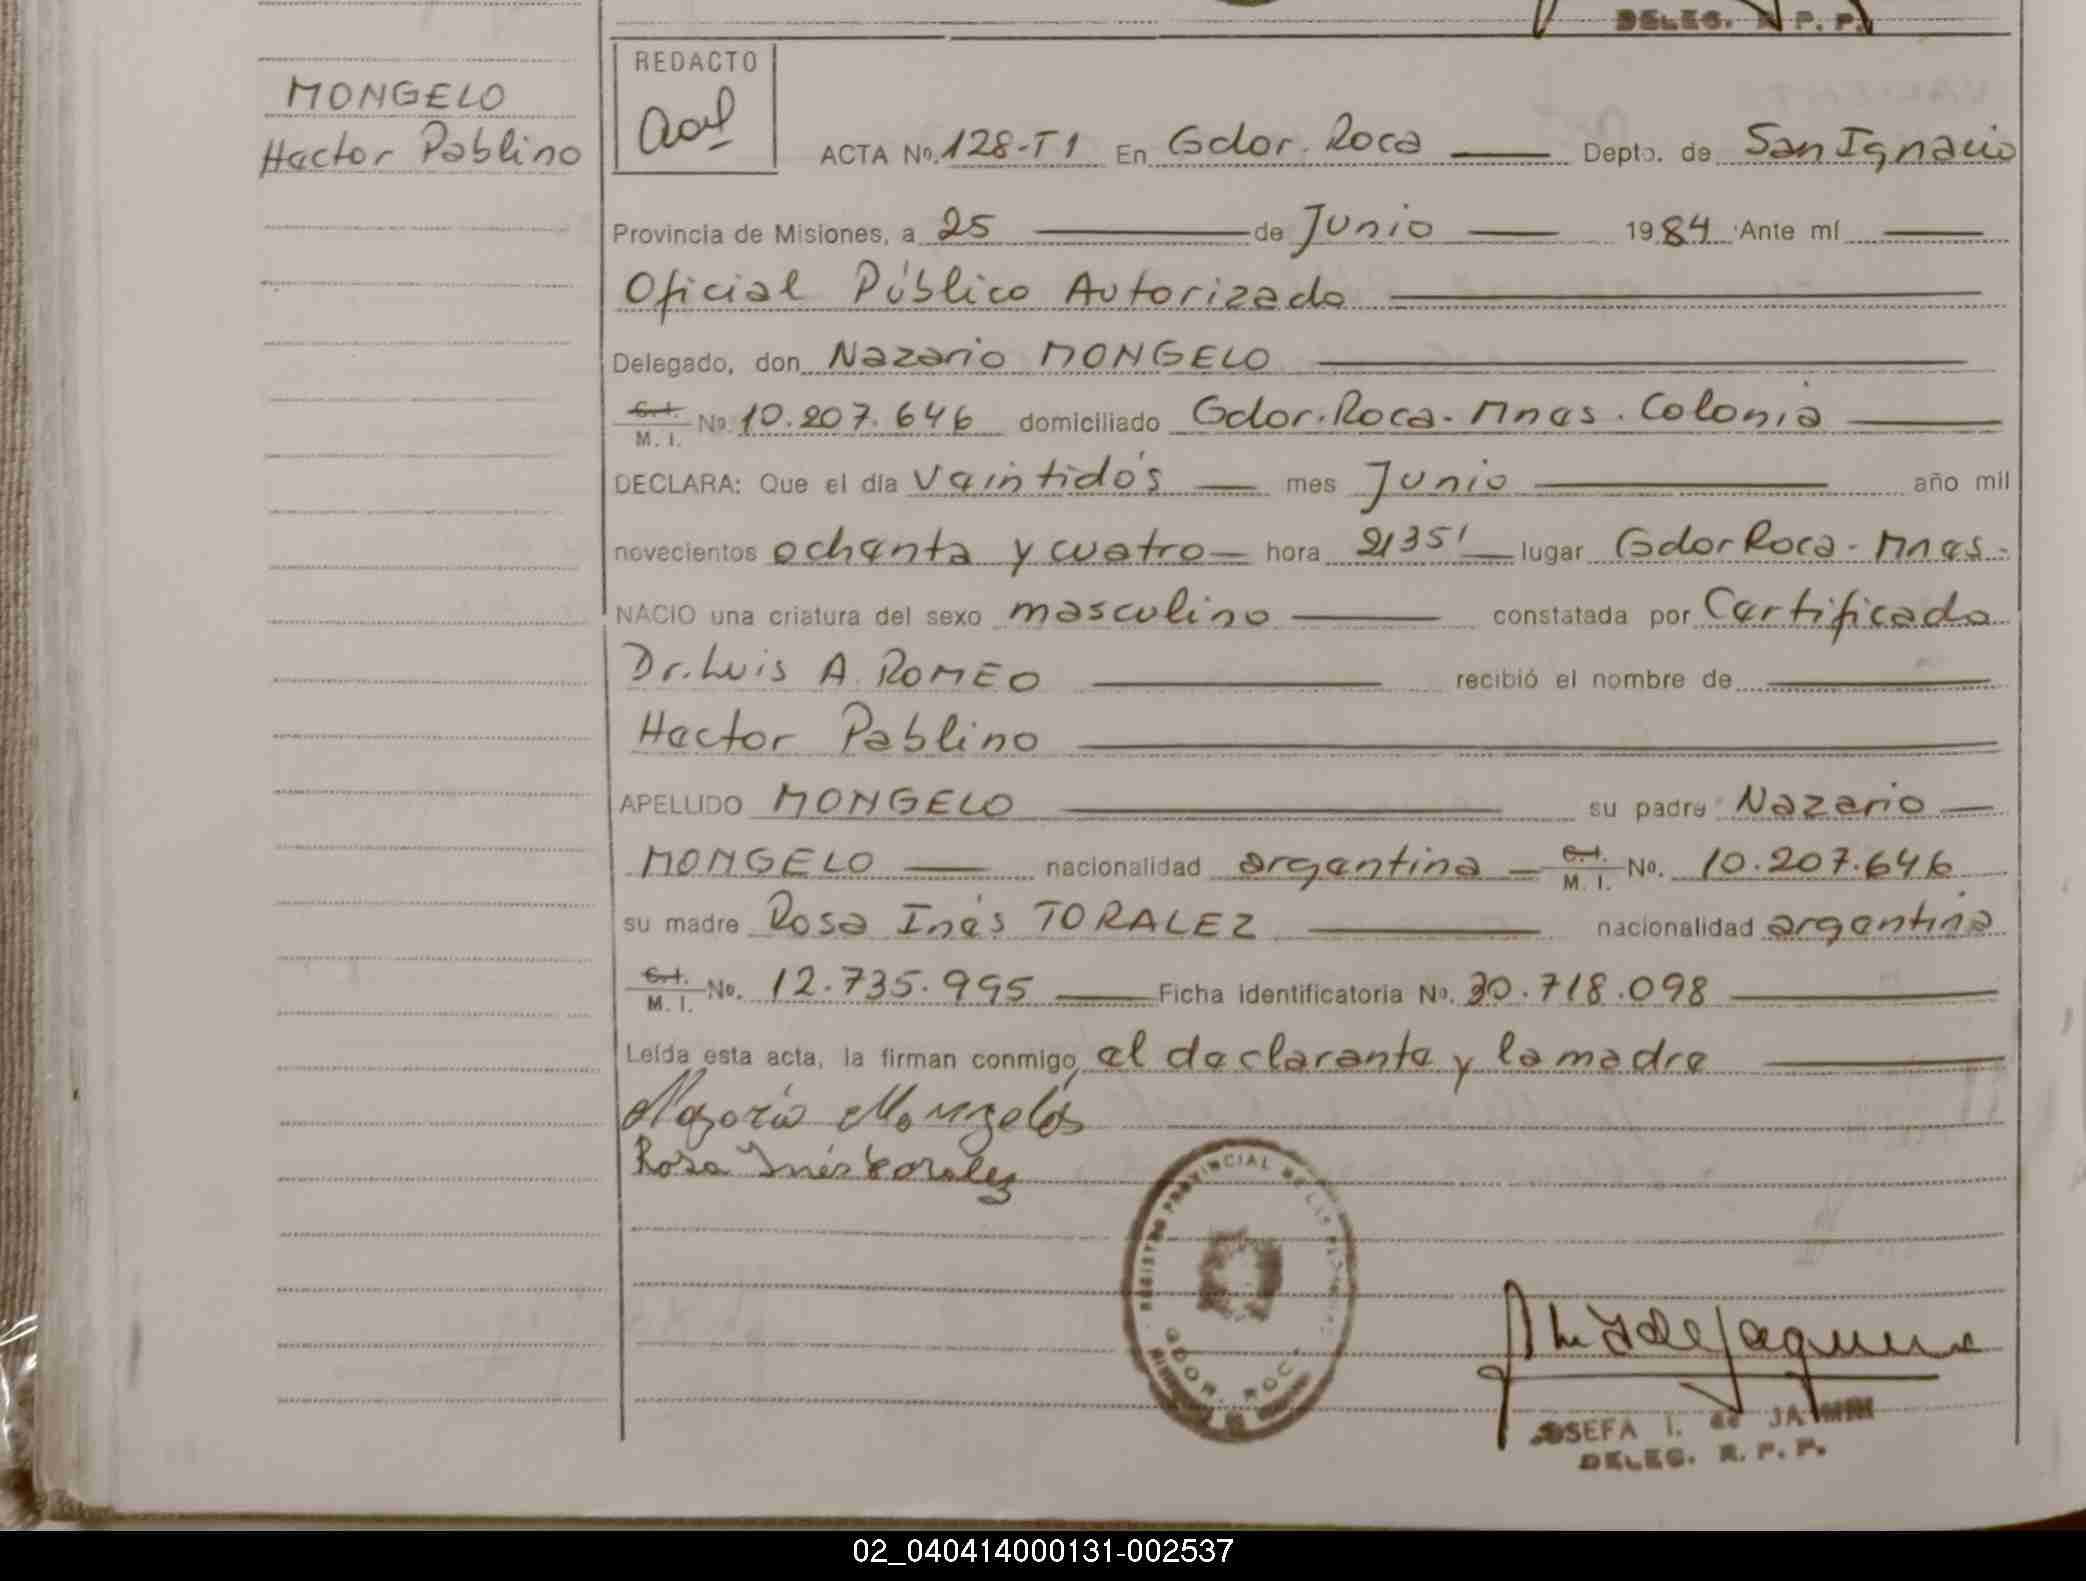 DELEG. R. P. P.
MONGELO
Hector Pablino
REDACTO
ACTA No. 128-T1 En Gdor. Roca Depto. de San Ignacio
Provincia de Misiones, a 25 de Junio 1984 Ante mí
Oficial Público Autorizado
Delegado, don Nazario MONGELO
C.I. M. I. No. 10.207.646 domiciliado Gdor. Roca - Mnes. Colonia
DECLARA: Que el día Veintidós mes Junio año mil
novecientos ochenta y cuatro hora 2135' lugar Gdor Roca - Mnes -
NACIO una criatura del sexo masculino constatada por Certificado
Dr. Luis A. ROMEO recibió el nombre de
Hector Pablino
APELLIDO MONGELO su padre Nazario
MONGELO nacionalidad argentina C.I. M. I. No. 10.207.646
su madre Rosa Inés TORALEZ nacionalidad argentina
C.I. M. I. No. 12.735.995 Ficha identificatoria No. 30.718.098
Leída esta acta, la firman conmigo, el declarante y la madre
Nazario Mongelós
Rosa Inés toralez
REGISTRO PROVINCIAL DE LAS PERSONAS
GDOR. ROCA
JOSEFA I. de
DELEG. R. P. P.
02_040414000131-002537